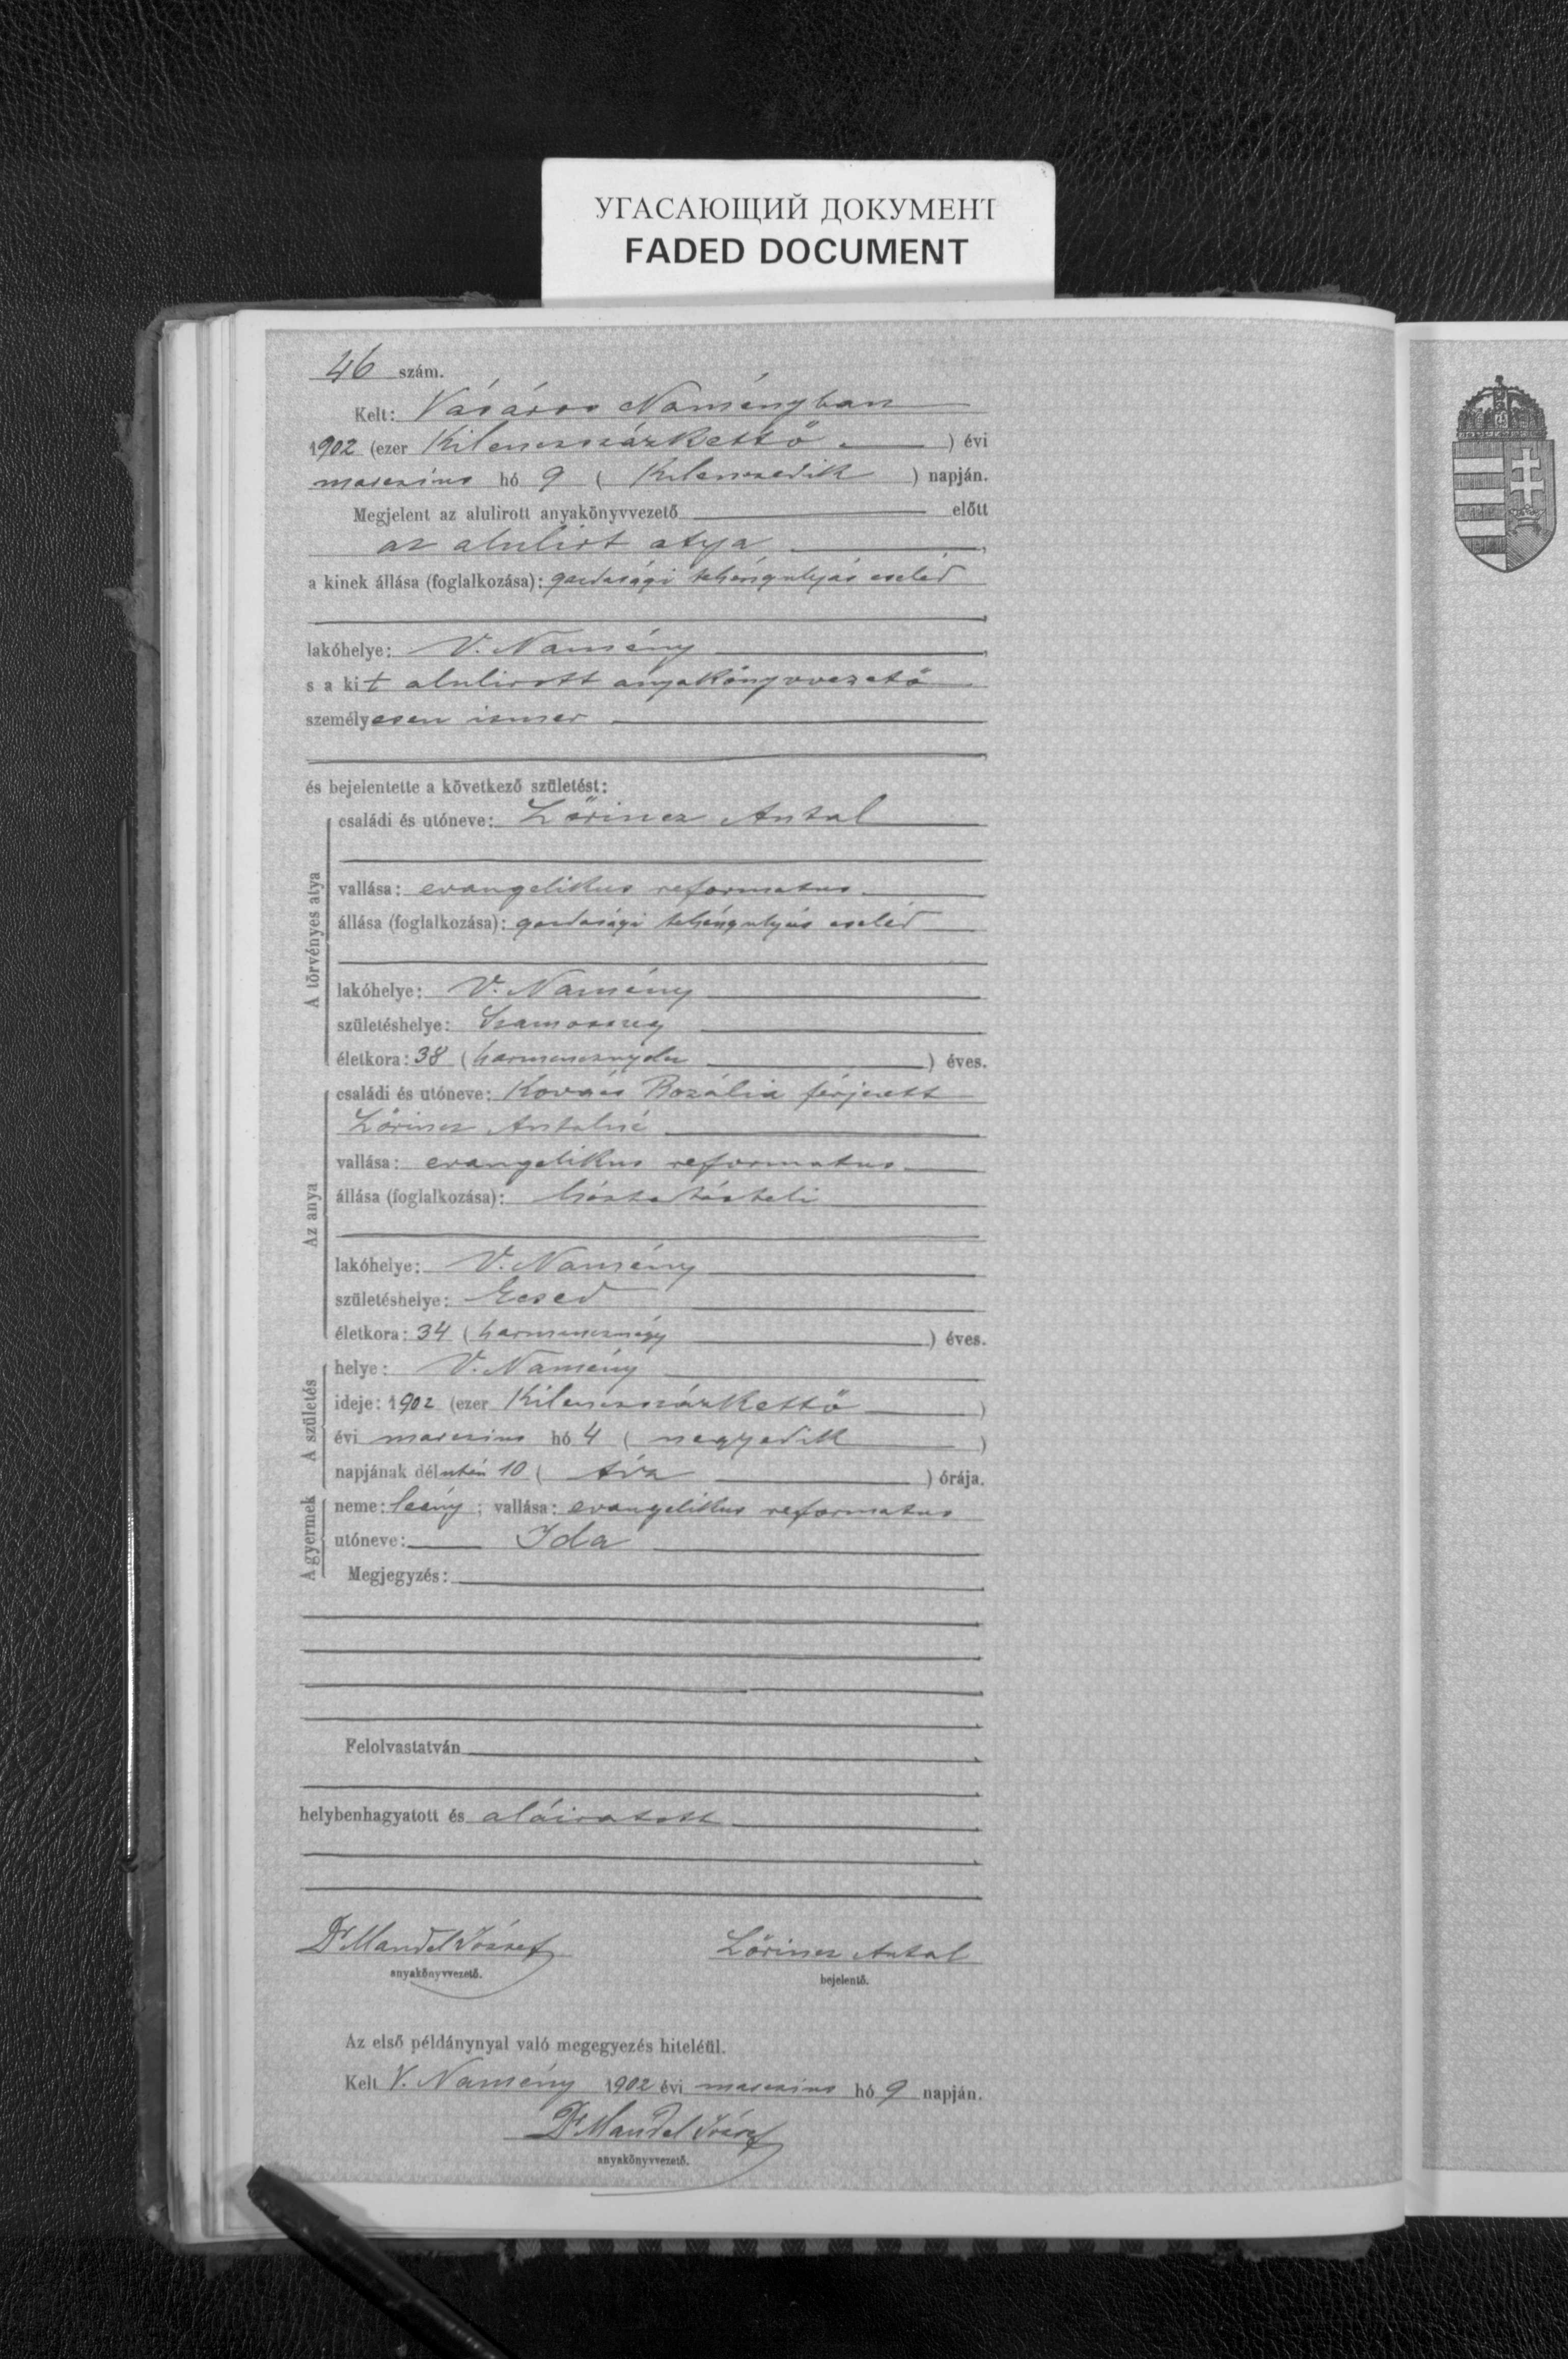 УГАСАЮЩИЙ ДОКУМЕНТ
FADED DOCUMENT
46 szám.
Kelt: Vásáros Naményban
1902 (ezer Kilenczszázkettő ) évi
marczius hó 9 ( Kilenczedik ) napján.
Megjelent az alulirott anyakönyvvezető előtt
az alulirt atya
a kinek állása (foglalkozása): gazdasági tehéngulyás cseléd
lakóhelye: V. Namény
s a kit alulirott anyakönyvvezető
személyesen ismer
és bejelentette a következő születést:
A törvényes atya
családi és utóneve: Lőrincz Antal
vallása: evangelikus reformatus
állása (foglalkozása): gazdasági tehéngulyás cseléd
lakóhelye: V. Namény
születéshelye: Szamosszeg
életkora: 38 ( harmincznyolcz ) éves.
Az anya
családi és utóneve: Kovács Rozália férjezett
Lőrincz Antalné
vallása: evangelikus reformatus
állása (foglalkozása): háztartásbeli
lakóhelye: V. Namény
születéshelye: Ecsed
életkora: 34 ( harmincznégy ) éves.
A születés
helye: V. Namény
ideje: 1902 (ezer Kilenczszázkettő )
évi marczius hó 4 ( negyedik )
napjának délután 10 ( tiz ) órája.
A gyermek
neme: leány ; vallása: evangelikus reformatus
utóneve: Ida
Megjegyzés:
Felolvastatván
helybenhagyatott és aláiratott
Dr Mandel József Lőrincz Antal
anyakönyvvezető. bejelentő.
Az első példánynyal való megegyezés hiteléül.
Kelt V. Namény 1902 évi marczius hó 9 napján.
Dr Mandel József
anyakönyvvezető.